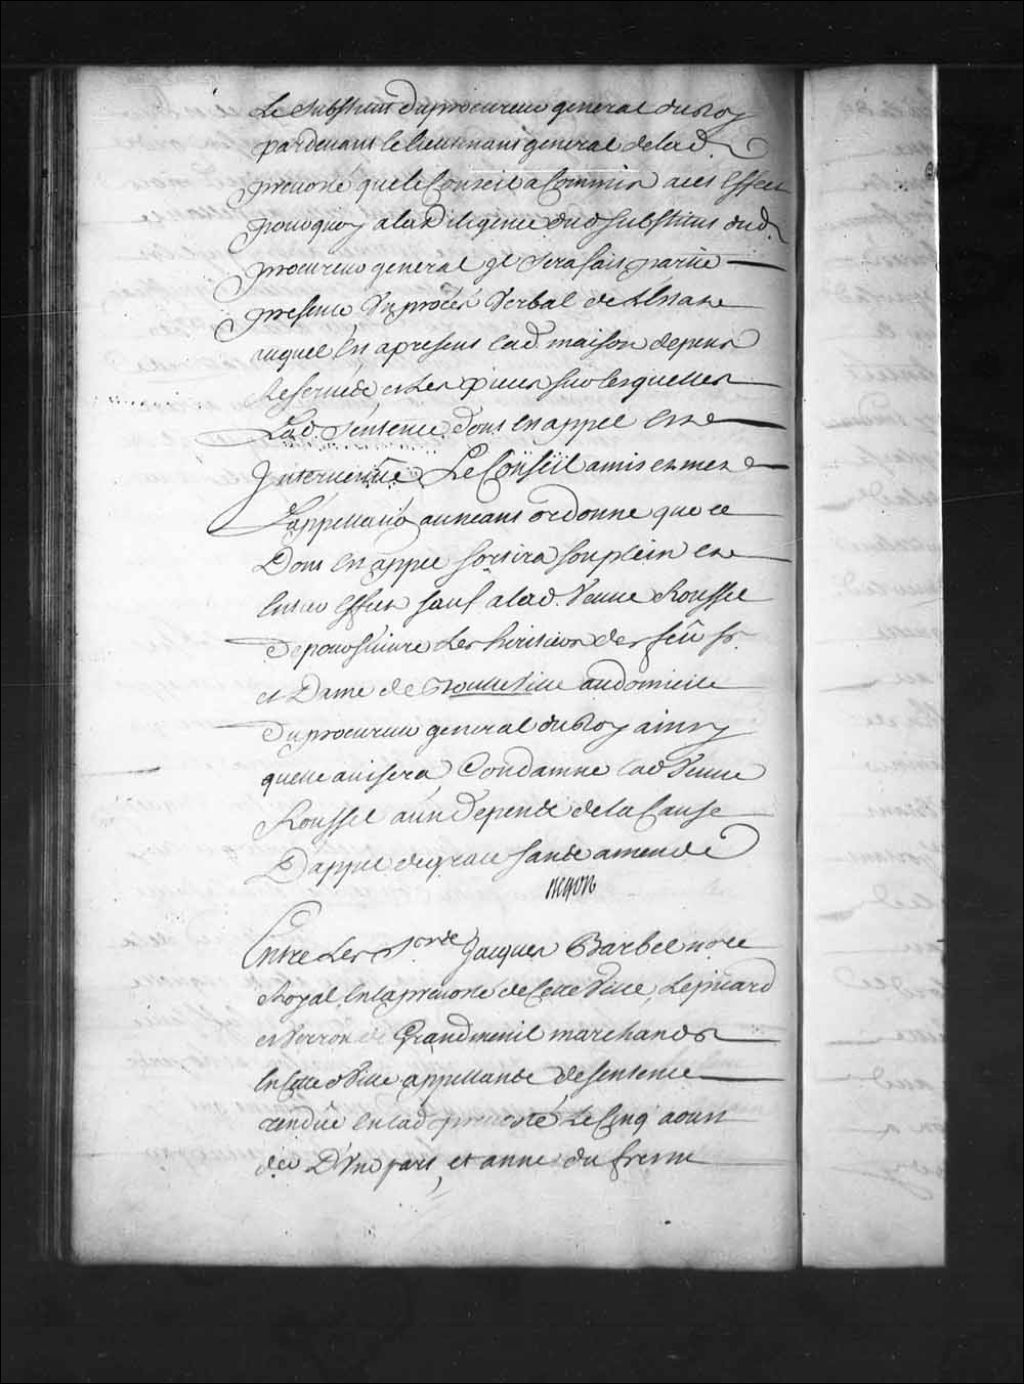 Le substitut du procureur general du Roy
pardevant le lieutenant general de lad.
prevosté que le Conseil a Commis a cet Effect
pourquoy a la Diligence dud substitut dud.
procureur general il sera fait partie
presente Un procés Verbal de l'Estat
auquel est apresent lad maison depuis
les pieces sur lesquelles
Lad. Sentence dont est appel est
Intervenüe Le Conseil a mis et met
L'appellation au neant ordonne que ce
Dont est appel sortira son plein et
Entier Effect sauf a lad. Veuve Roussel
De poursuivre Les heritiers des feu sr.
et Dame de au domicile
Du procureur general du Roy ainsy
quelle avisera Condamne lad Veuve
Roussel aux Depens de la Cause
D'appel de grace sans amende
Begon
Entre Les Srs Jacques Barbel nore
Royal En la prevosté de Cette Ville,
et Perron de Grandmenil marchands
En Cette Ville appellants de sentence
rendüe En lad prevosté Le Cinq aoust
der D'Une part, et anne du fresne